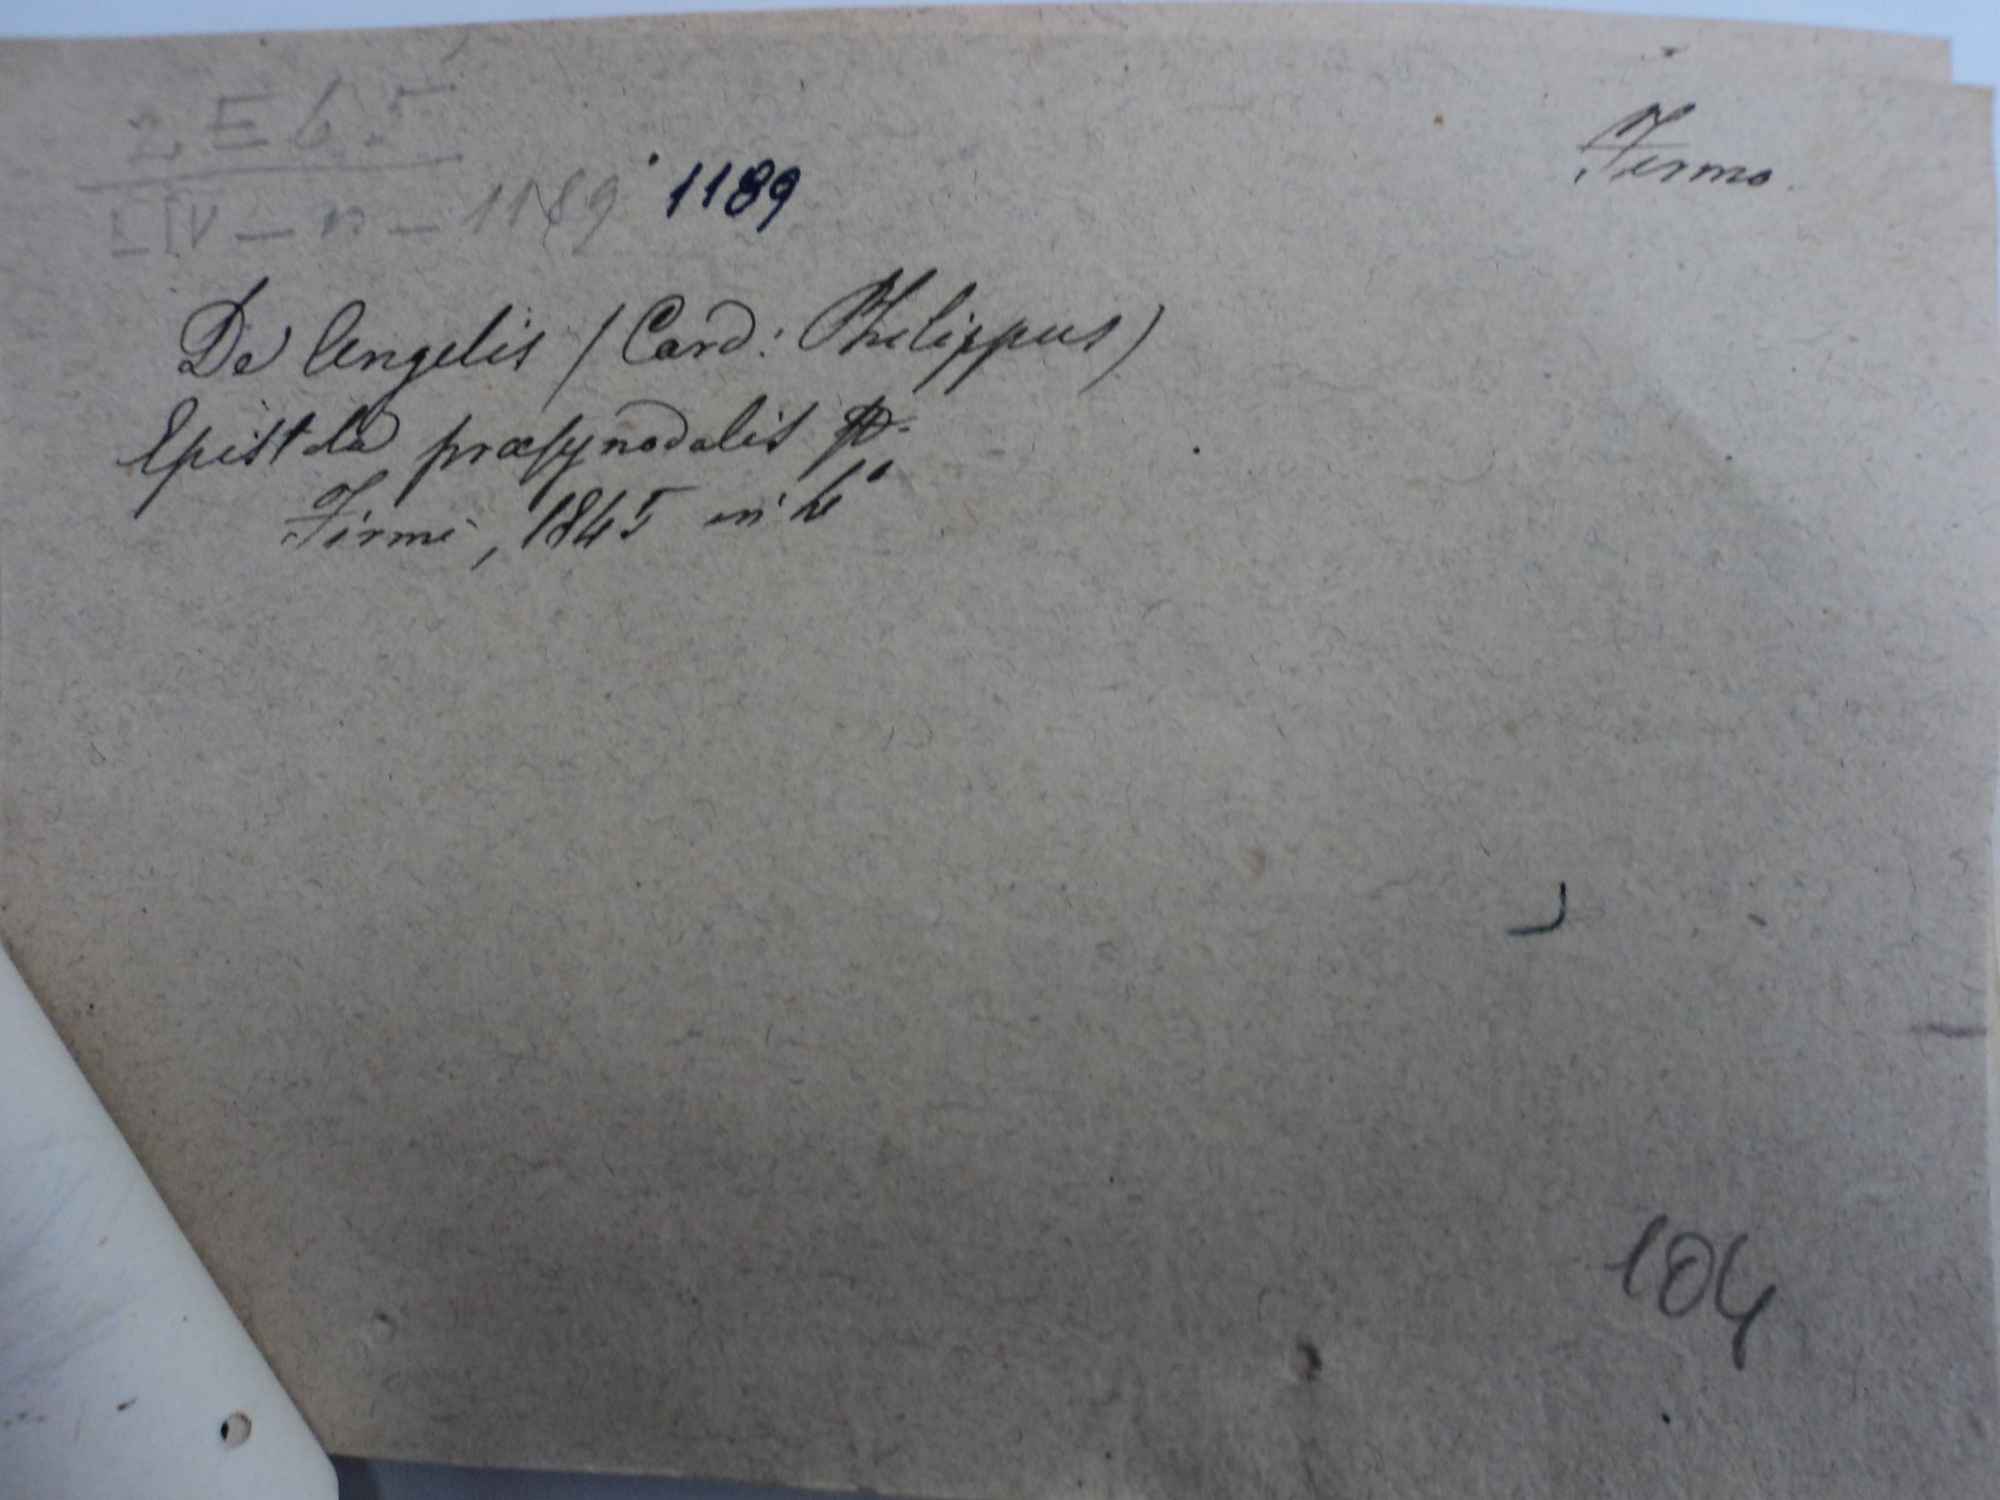 2 E 6.5
Firmo.
LIV - n - 1189 1189
De Angelis (Card: Philippus)
Epistola præsynodalis
Firmi, 1845 in 4°
104